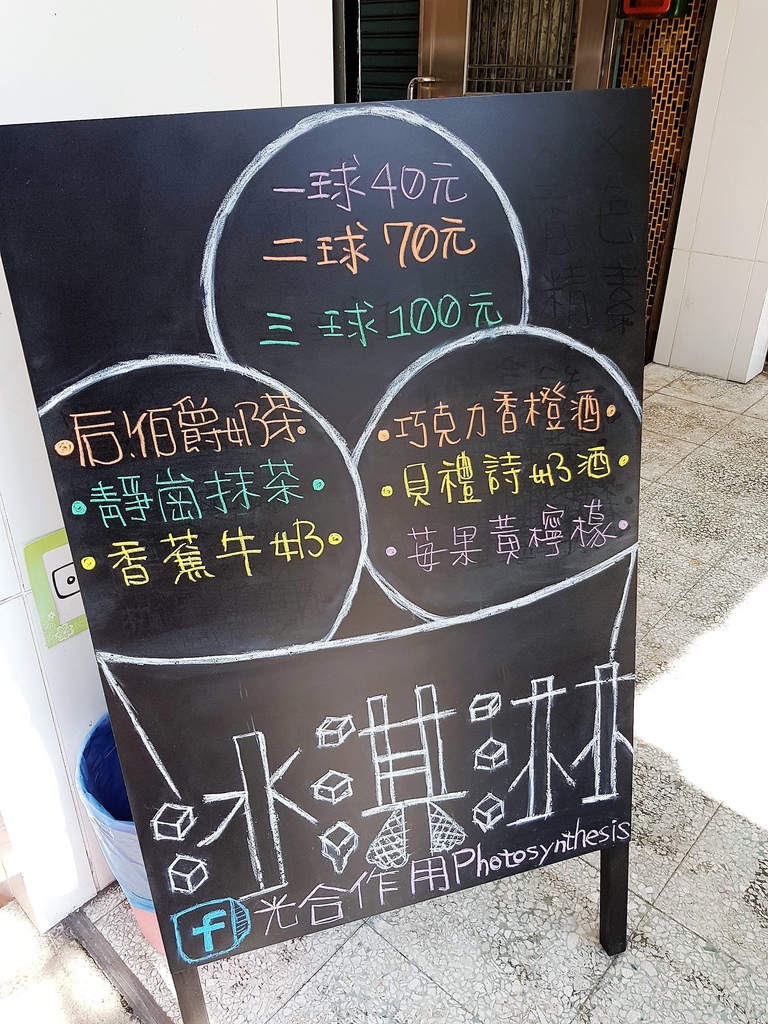 一球40元
二球70元
三球100元
后!伯爵奶茶
靜崗抹茶
香蕉牛奶
巧克力香橙酒
貝禮詩奶酒
莓果黃檸檬
冰淇淋
光合作用Photosynthesis